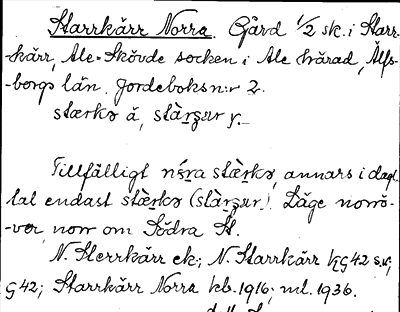 Starrkärr Norra. Gård 1/2 sk. i Starr-
-kärr, Ale-Skövde socken i Ale härad, Älfs-
borgs län. Jordeboksn:r 2.
stærkə å, stàrzur y.
Tillfälligt nɷ́ra stærkə, annars i dagl.
tal endast stærkə (stàrzur). Läge norrö-
-ver, norr om Södra St.
N. Sterrkärr ek; N. Starrkärr
G 42; Starrkärr Norra kb. 1916; ml. 1936.